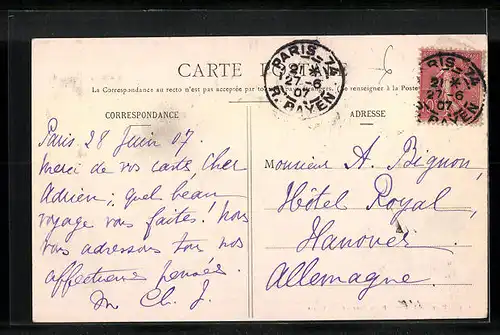 CARTE
PARIS 74
21 *
27-6
07
R. BAYEN
RIS. 74
21 *
27-6
07
BAYEN
La Correspondance au recto n'est pas acceptée par tous les pays étrangers. (Se renseigner à la Poste
CORRESPONDANCE
ADRESSE
Paris 28 Juin 07.
Merci de vos carts, Cher
Adrien; quel beau
voyage vous faites! Nous
vous adressons tous nos
affectueuses pensées.
M Ch. J.
Monsieur A. Bignon,
Hôtel Royal,
Hanover
Allemagne.